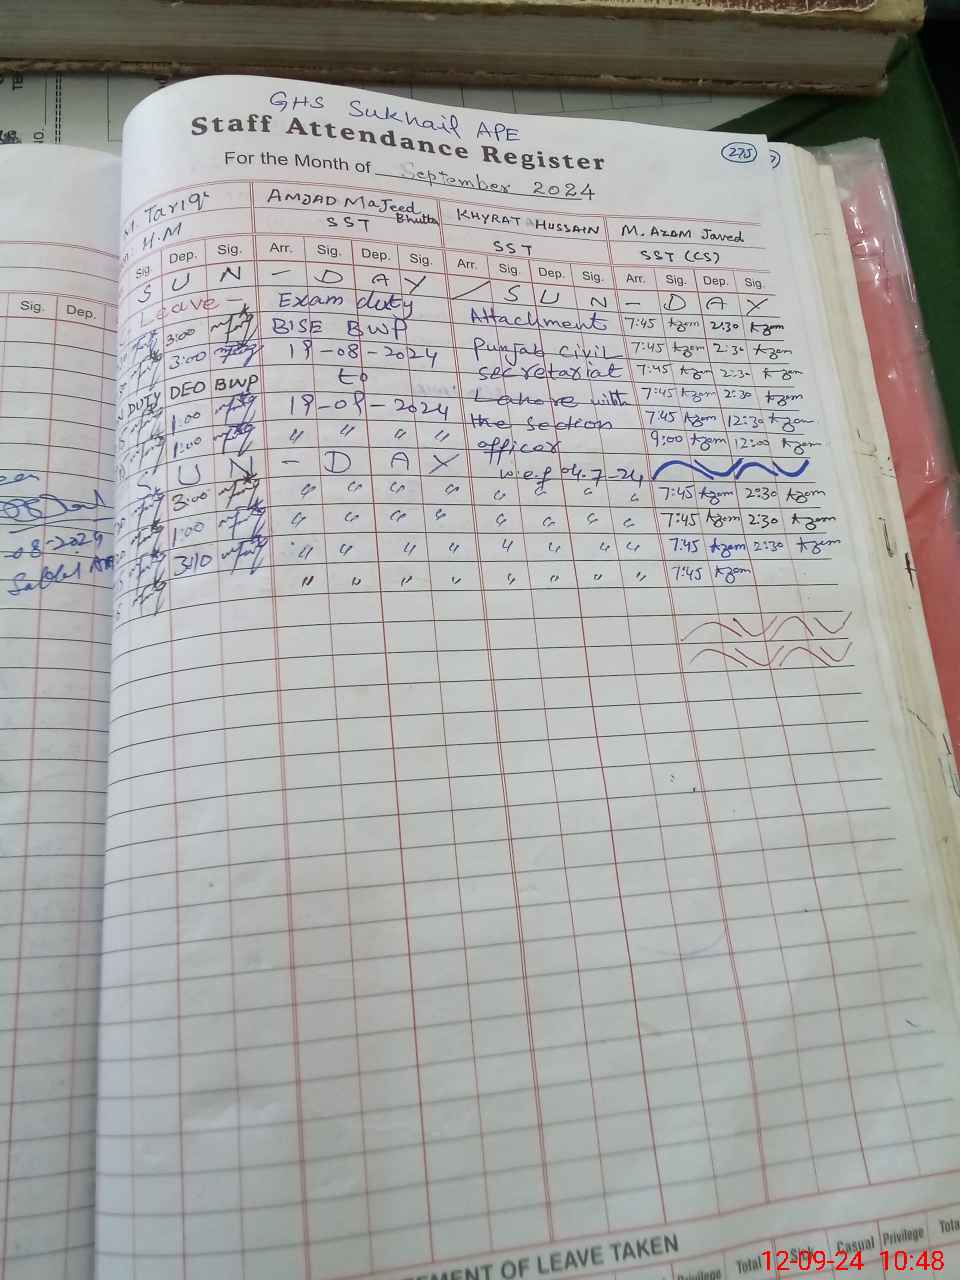 GHS Sukhail APE
Staff Attendance Register
275
For the Month of September 2024
M. Tariq
H.M
AMJAD MaJeed Bhutta
SST
KHYRAT HUSSAIN
SST
M. AZAM Javed
SST (CS)
Sig. Dep. Sig. Arr. Sig. Dep. Sig. Arr. Sig. Dep. Sig. Arr. Sig. Dep. Sig.
Sig. Dep.
S U N - D A Y S U N - D A Y
Leave - Exam duty Attachment 7:45 Azam 2:30 Azam
3:00 BISE BWP Punjab Civil 7:45 Azam 2:30 Azam
3:00 19-08-2024 secretariat 7:45 Azam 2:30 Azam
DUTY DEO BWP to Lahore with 7:45 Azam 2:30 Azam
1:00 19-09-2024 the Section 7:45 Azam 12:30 Azam
1:00 " " " " officer 9:00 Azam 12:00 Azam
S U N - D A Y w.e.f 04-7-24
3:00 " " " " " " " " 7:45 Azam 2:30 Azam
1:00 " " " " " " " " 7:45 Azam 2:30 Azam
3:10 " " " " " " " " 7:45 Azam 2:30 Azam
" " " " " " " " 7:45 Azam
08-2024
STATEMENT OF LEAVE TAKEN
Privilege Total Sick Casual Privilege Total
12-09-24 10:48